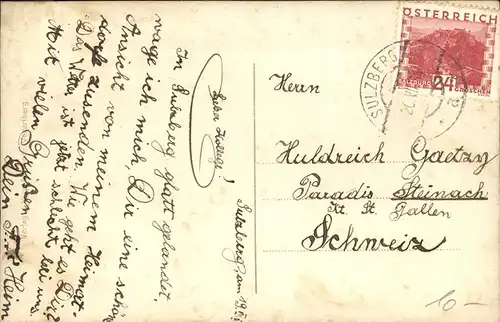 Sulzberg, am 19.
Lieber Kollege!
In Sulzberg glatt gelandet,
wage ich mich Dir eine schöne
Ansicht von meinem Heimat-
dorfe zusenden. Wie geht es Dir
Das Wetter ist jetzt schlecht bei uns.
Mit vielen Grüssen
Dein Heim
ÖSTERREICH
SALZBURG 24 GROSCHEN
SULZBERG
a
Herrn
Huldreich Gaetzy
Paradis Steinach
Kt. St. Gallen
Schweiz
10 –